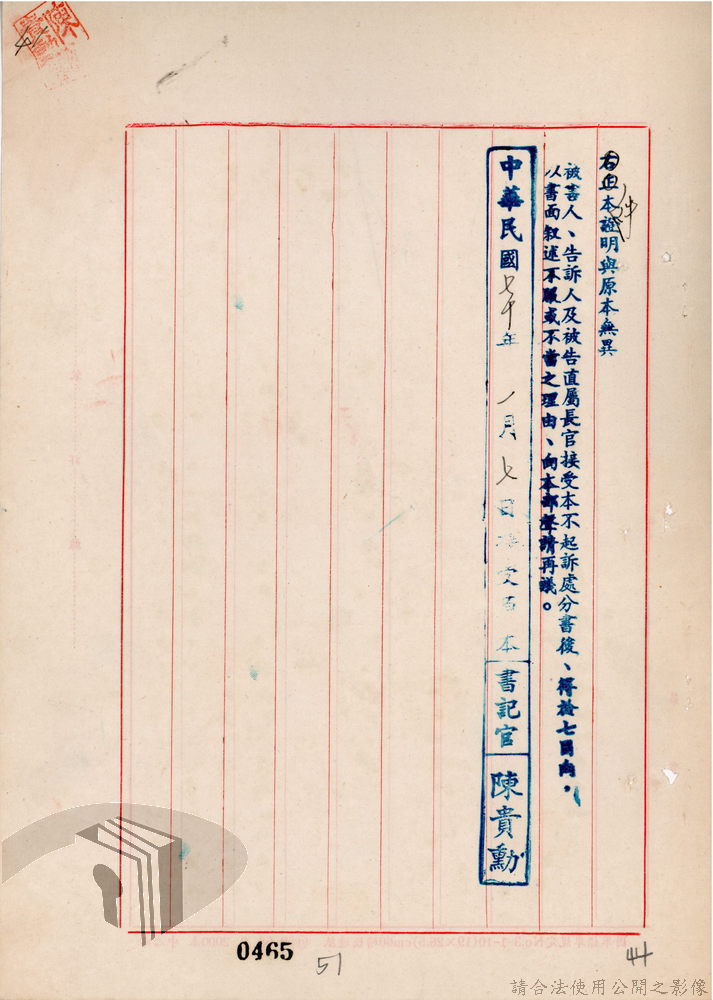 右正本證明與原本無異
被害人、告訴人及被告直屬長官接受本不起訴處分書後、得於七日內，
以書面叙述不服或不當之理由、向本部聲請再議。
中華民國七十年一月七日
本
書記官
陳貴勳
0465
51
44
請合法使用公開之影像